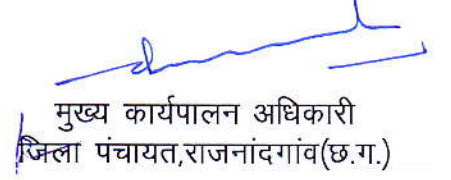 मुख्य कार्यपालन अधिकारी
जिला पंचायत,राजनांदगांव(छ.ग.)